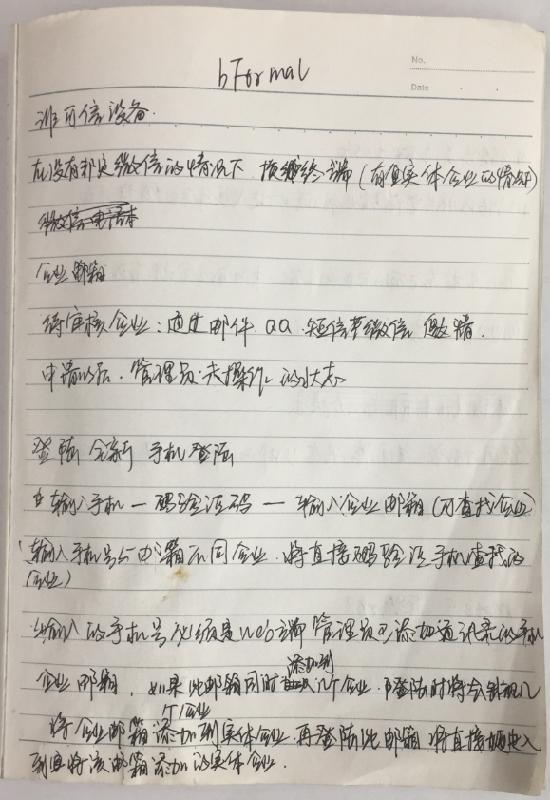 No.
Date
bFormal
非可信设备.
在没有补史微信的情况下 换绑终端(有真实体企业的情况)
微信电话本
企业邮箱
待审核企业:通过邮件.QQ.短信等微信 邀请.
申请以后.管理员未操作的状态
登陆 全新手机登陆
输入手机—码验证码—输入企业邮箱(可查找企业)
输入手机号与邮箱不同企业.将直接码验证手机查找的
企业)
输入的手机号必须是web端管理员已添加通讯录的手机
企业邮箱.如果此邮箱同时添加到几个企业.登陆时将会出现几
个企业
将企业邮箱添加到实体企业.再登陆此邮箱将直接进入
到有将该邮箱添加的实体企业.